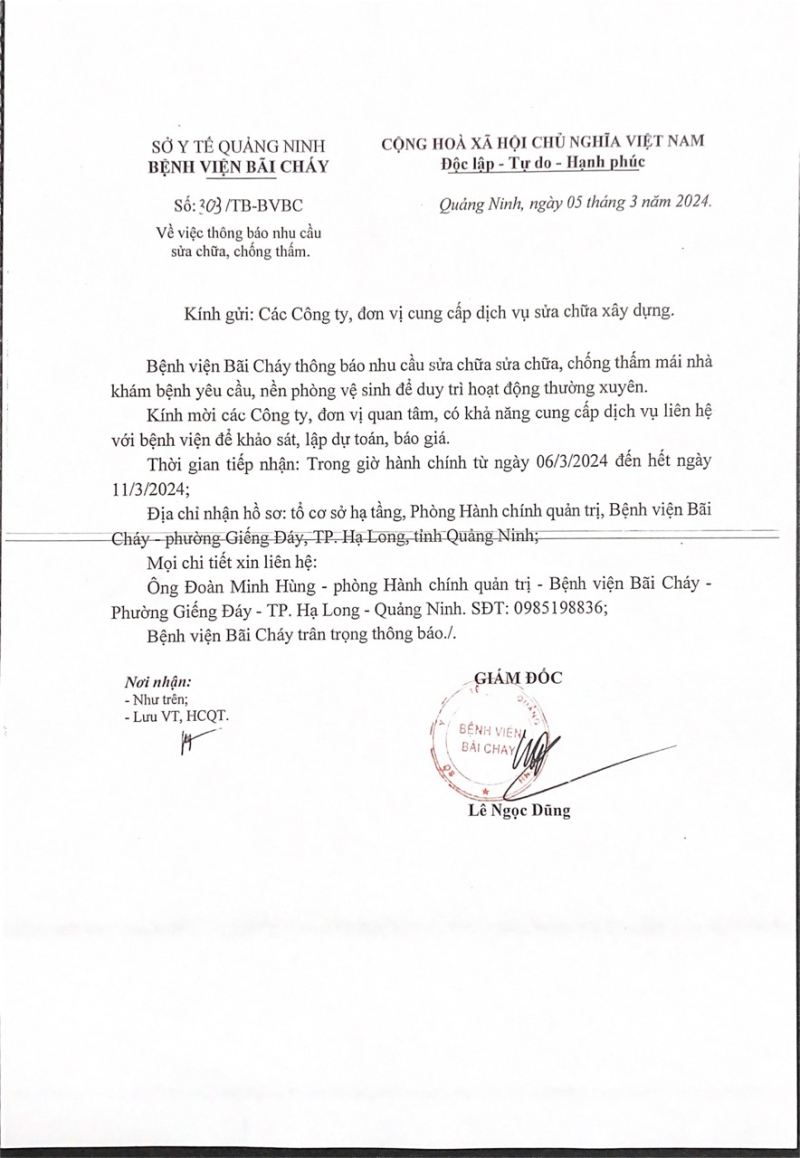 SỞ Y TẾ QUẢNG NINH
BỆNH VIỆN BÃI CHÁY
CỘNG HOÀ XÃ HỘI CHỦ NGHĨA VIỆT NAM
Độc lập - Tự do - Hạnh phúc
Số: 303 /TB-BVBC
Về việc thông báo nhu cầu
sửa chữa, chống thấm.
Quảng Ninh, ngày 05 tháng 3 năm 2024.
Kính gửi: Các Công ty, đơn vị cung cấp dịch vụ sửa chữa xây dựng.
Bệnh viện Bãi Cháy thông báo nhu cầu sửa chữa sửa chữa, chống thấm mái nhà
khám bệnh yêu cầu, nền phòng vệ sinh để duy trì hoạt động thường xuyên.
Kính mời các Công ty, đơn vị quan tâm, có khả năng cung cấp dịch vụ liên hệ
với bệnh viện để khảo sát, lập dự toán, báo giá.
Thời gian tiếp nhận: Trong giờ hành chính từ ngày 06/3/2024 đến hết ngày
11/3/2024;
Địa chỉ nhận hồ sơ: tổ cơ sở hạ tầng, Phòng Hành chính quản trị, Bệnh viện Bãi
Cháy - phường Giếng Đáy, TP. Hạ Long, tỉnh Quảng Ninh;
Mọi chi tiết xin liên hệ:
Ông Đoàn Minh Hùng - phòng Hành chính quản trị - Bệnh viện Bãi Cháy -
Phường Giếng Đáy - TP. Hạ Long - Quảng Ninh. SĐT: 0985198836;
Bệnh viện Bãi Cháy trân trọng thông báo./.
Nơi nhận:
- Như trên;
- Lưu VT, HCQT.
GIÁM ĐỐC
BỆNH VIỆN
BÃI CHÁY
Lê Ngọc Dũng